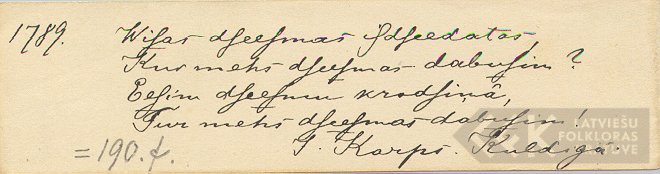 1789. Wiſas dſeeſmas iſdſeedatas,
Kur mehs dſeeſmas dabuſim?
Eeſim dſeeſmu krodſiņâ,
Tur mehs dſeeſmas dabuſim!
= 190. f. J. Karps. Kuldigâ.
LATVIEŠU
FOLKLORAS
KRĀTUVE